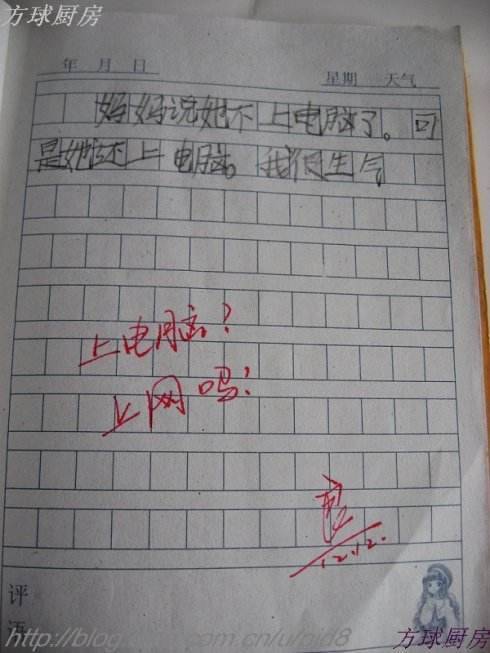 方球厨房
年 月 日
星期 天气
妈妈说她不上电脑了。可
是她还上电脑。我很生气
上电脑?
上网吗?
良
12.12.
评
语
方球厨房